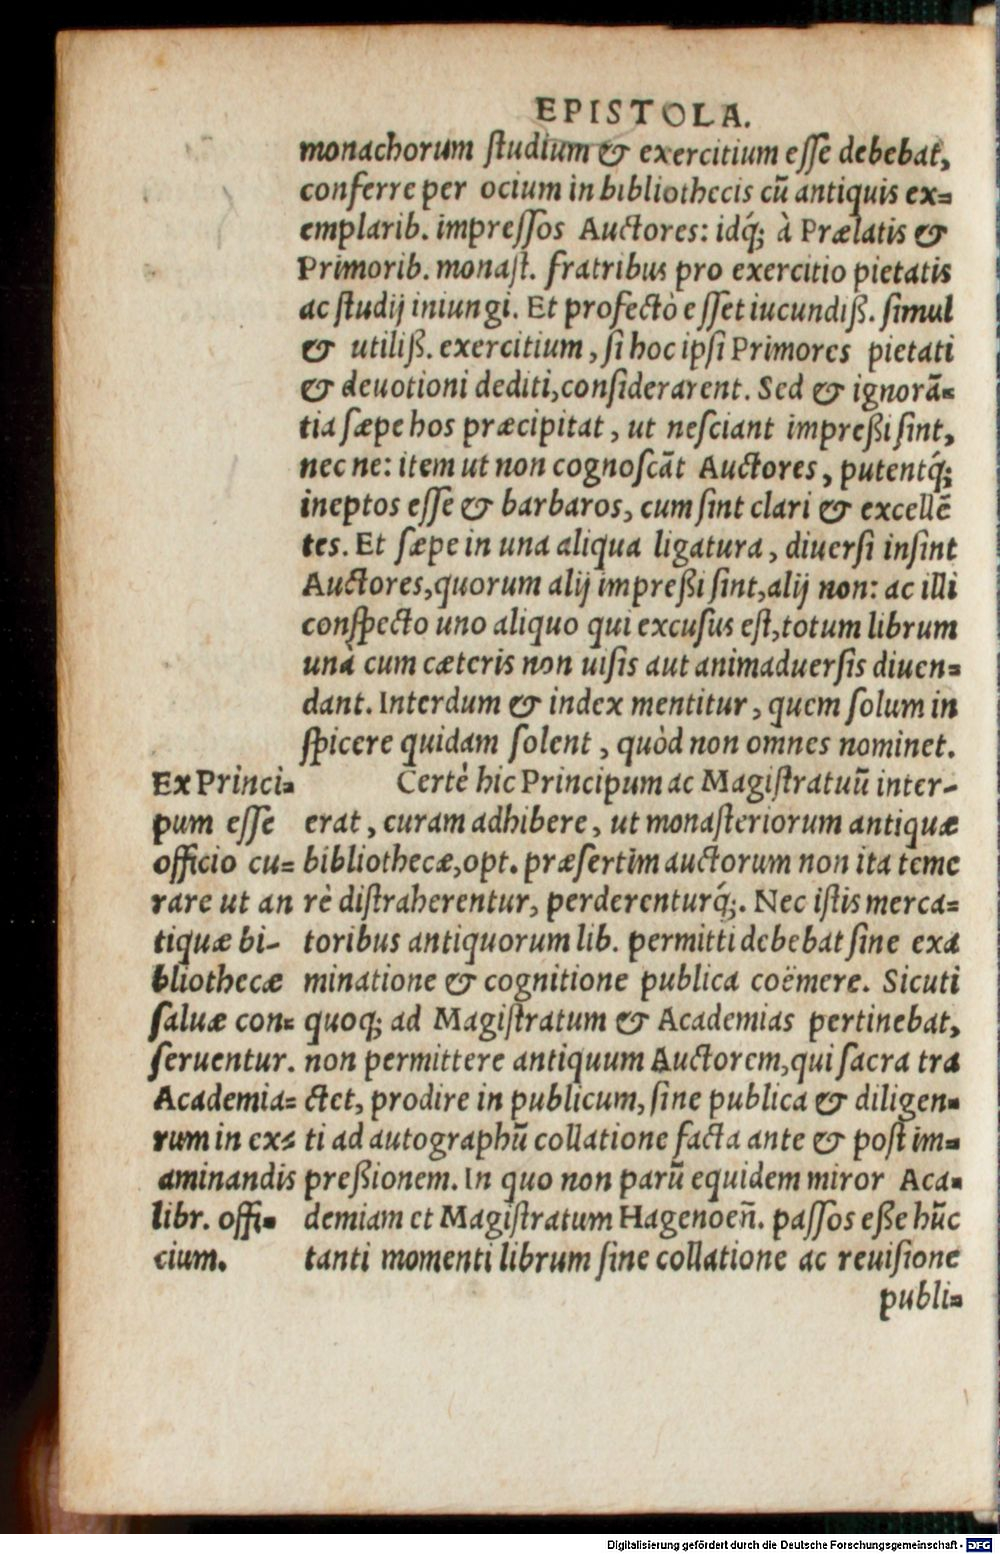 EPISTOLA.
monachorum ſtudium & exercitium eſſe debebat,
conferre per ocium in bibliothecis cū antiquis ex=
emplarib. impreſſos Auctores: idq́; à Prælatis &
Primorib. monaſt. fratribus pro exercitio pietatis
ac ſtudij iniungi. Et profectò eſſet iucundiß. ſimul
& utiliß. exercitium, ſi hoc ipſi Primores pietati
& deuotioni dediti, conſiderarent. Sed & ignorā=
tia ſæpe hos præcipitat, ut neſciant impreßi ſint,
nec ne: item ut non cognoſcāt Auctores, putentq́;
ineptos eſſe & barbaros, cum ſint clari & excellē
tes. Et ſæpe in una aliqua ligatura, diuerſi inſint
Auctores, quorum alij impreßi ſint, alij non: ac illi
conſpecto uno aliquo qui excuſus eſt, totum librum
unà cum cæteris non uiſis aut animaduerſis diuen=
dant. Interdum & index mentitur, quem ſolum in
ſpicere quidam ſolent, quòd non omnes nominet.
Certè hic Principum ac Magiſtratuū inter-
erat, curam adhibere, ut monaſteriorum antiquæ
bibliothecæ, opt. præſertim auctorum non ita teme
rè diſtraherentur, perderenturq́;. Nec iſtis merca=
toribus antiquorum lib. permitti debebat ſine exa
minatione & cognitione publica coëmere. Sicuti
quoq; ad Magiſtratum & Academias pertinebat,
non permittere antiquum Auctorem, qui ſacra tra
ctet, prodire in publicum, ſine publica & diligen=
ti ad autographū collatione facta ante & poſt im=
preßionem. In quo non parū equidem miror Aca=
demiam et Magiſtratum Hagenoeñ. paſſos eße hūc
tanti momenti librum ſine collatione ac reuiſione
publi=
Ex Princi=
pum eſſe
officio cu=
rare ut an
tiquæ bi-
bliothecæ
ſaluæ con=
ſeruentur.
Academia=
rum in ex=
aminandis
libr. offi=
cium.
Digitalisierung gefördert durch die Deutsche Forschungsgemeinschaft - DFG